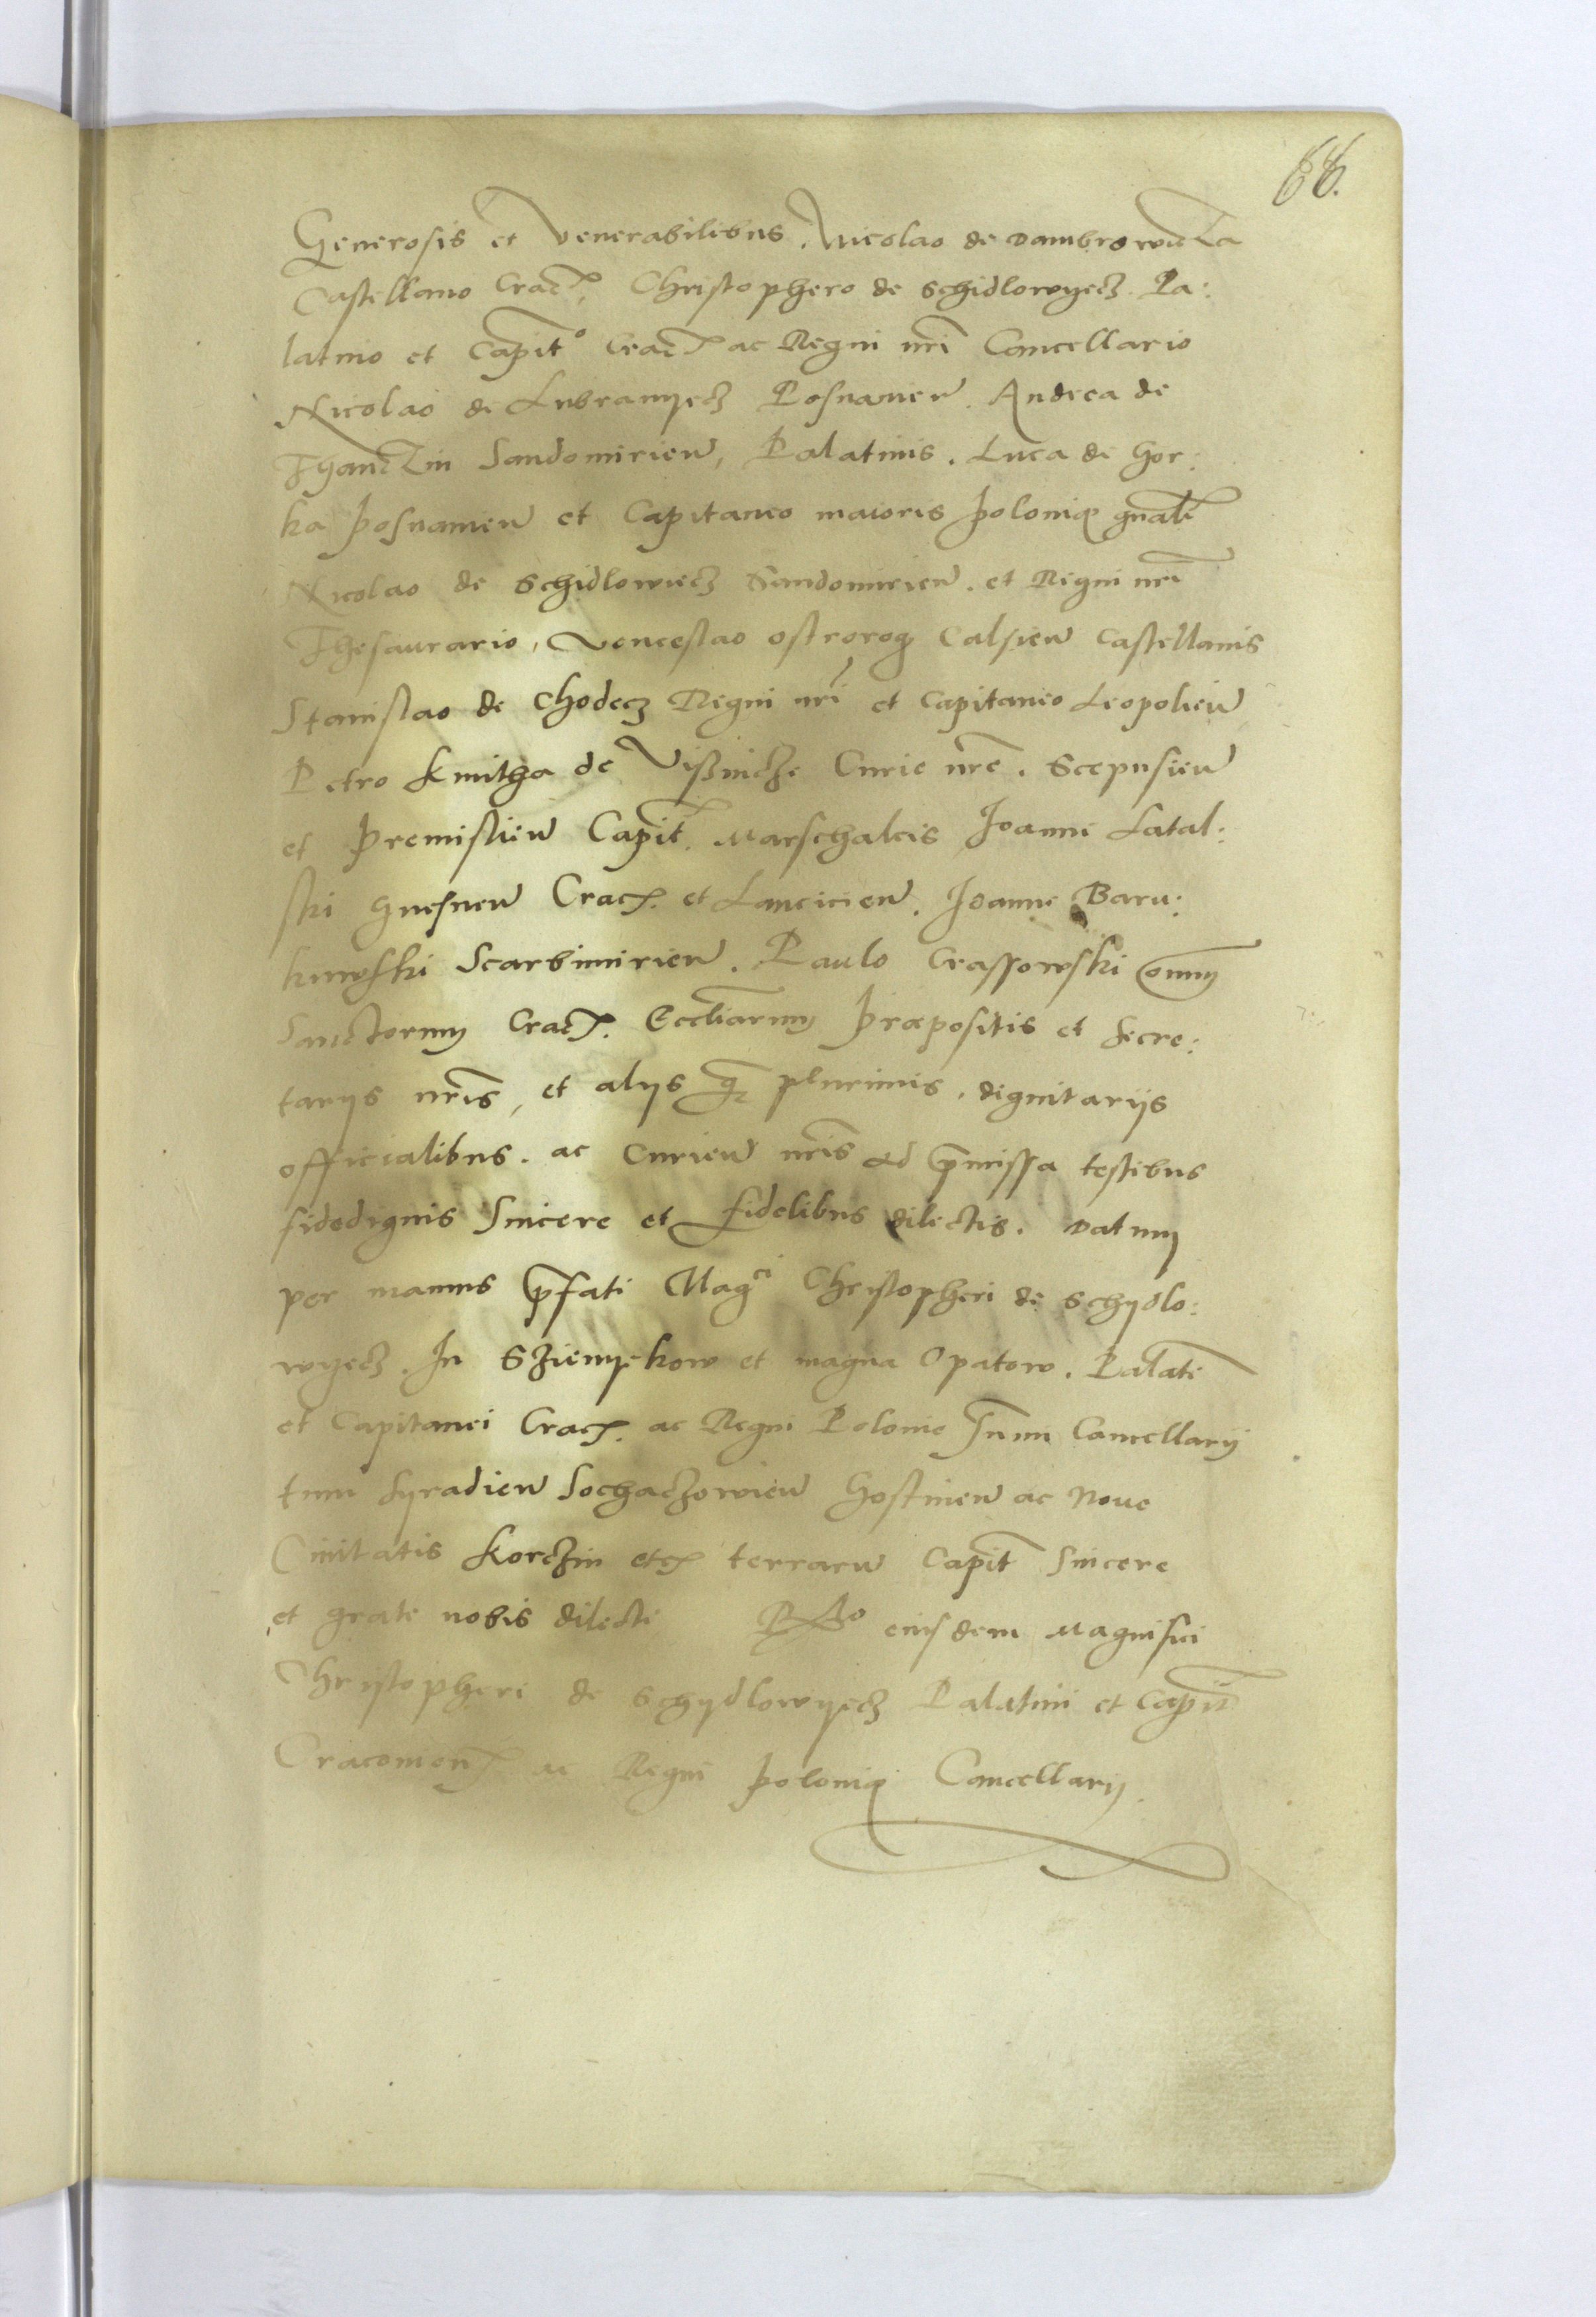 66.
Generosis et Venerabilibus. Nicolao de Dambrowicza
Castellano Crac. Christophero de Schidlowyecz. Pa:
latino et Capit° Crac. ac Regni nri Cancellario
Nicolao de Lubramyecz Posnanien. Andrea de
Thanczin Sandomirien, Palatinis. Luca de Gor:
ka Posnanien et Capitaneo maioris Polonię gnali
Nicolao de Schidlowiecz Sandomirien. et Regni nri
Thesaurario, Venceslao ostrorog Calsien Castellanis
Stanislao de Chodecz Regni nri et Capitaneo Leopolien
Petro Kmitha de Vißnicze Curie nre. Scepusien
et Premislien Capit. Marschalcis Joanni Latal:
ski Gnesnen Crac. et Lancicien. Joanne Baru:
kowski Scarbimirien. Paulo Crassowski omniũ
Sanctorum Crac. Eccliarum Præpositis et Secre:
tarijs nris, et alijs qz plurimis. dignitarijs
officialibus. ac Curien nris ad pmissa testibus
fidedignis Sincere et fidelibus dilectis. Datum
per manus pfati Mag^ci Christopheri de Schydlo:
wyecz. In Szienyekow et magna Opatow. Palati
et Capitanei Crac. ac Regni Polonie Cancellarij
tum Syradien Sochaczowien Gostinen ac Noue
Ciuitatis Korczin etc terraru Capit Sincere
et grate nobis dilecti eiusdem Magnifici
Christopheri de Schydlowyecz Palatini et Capit
Cracouien ac Regni Polonię Cancellarij.